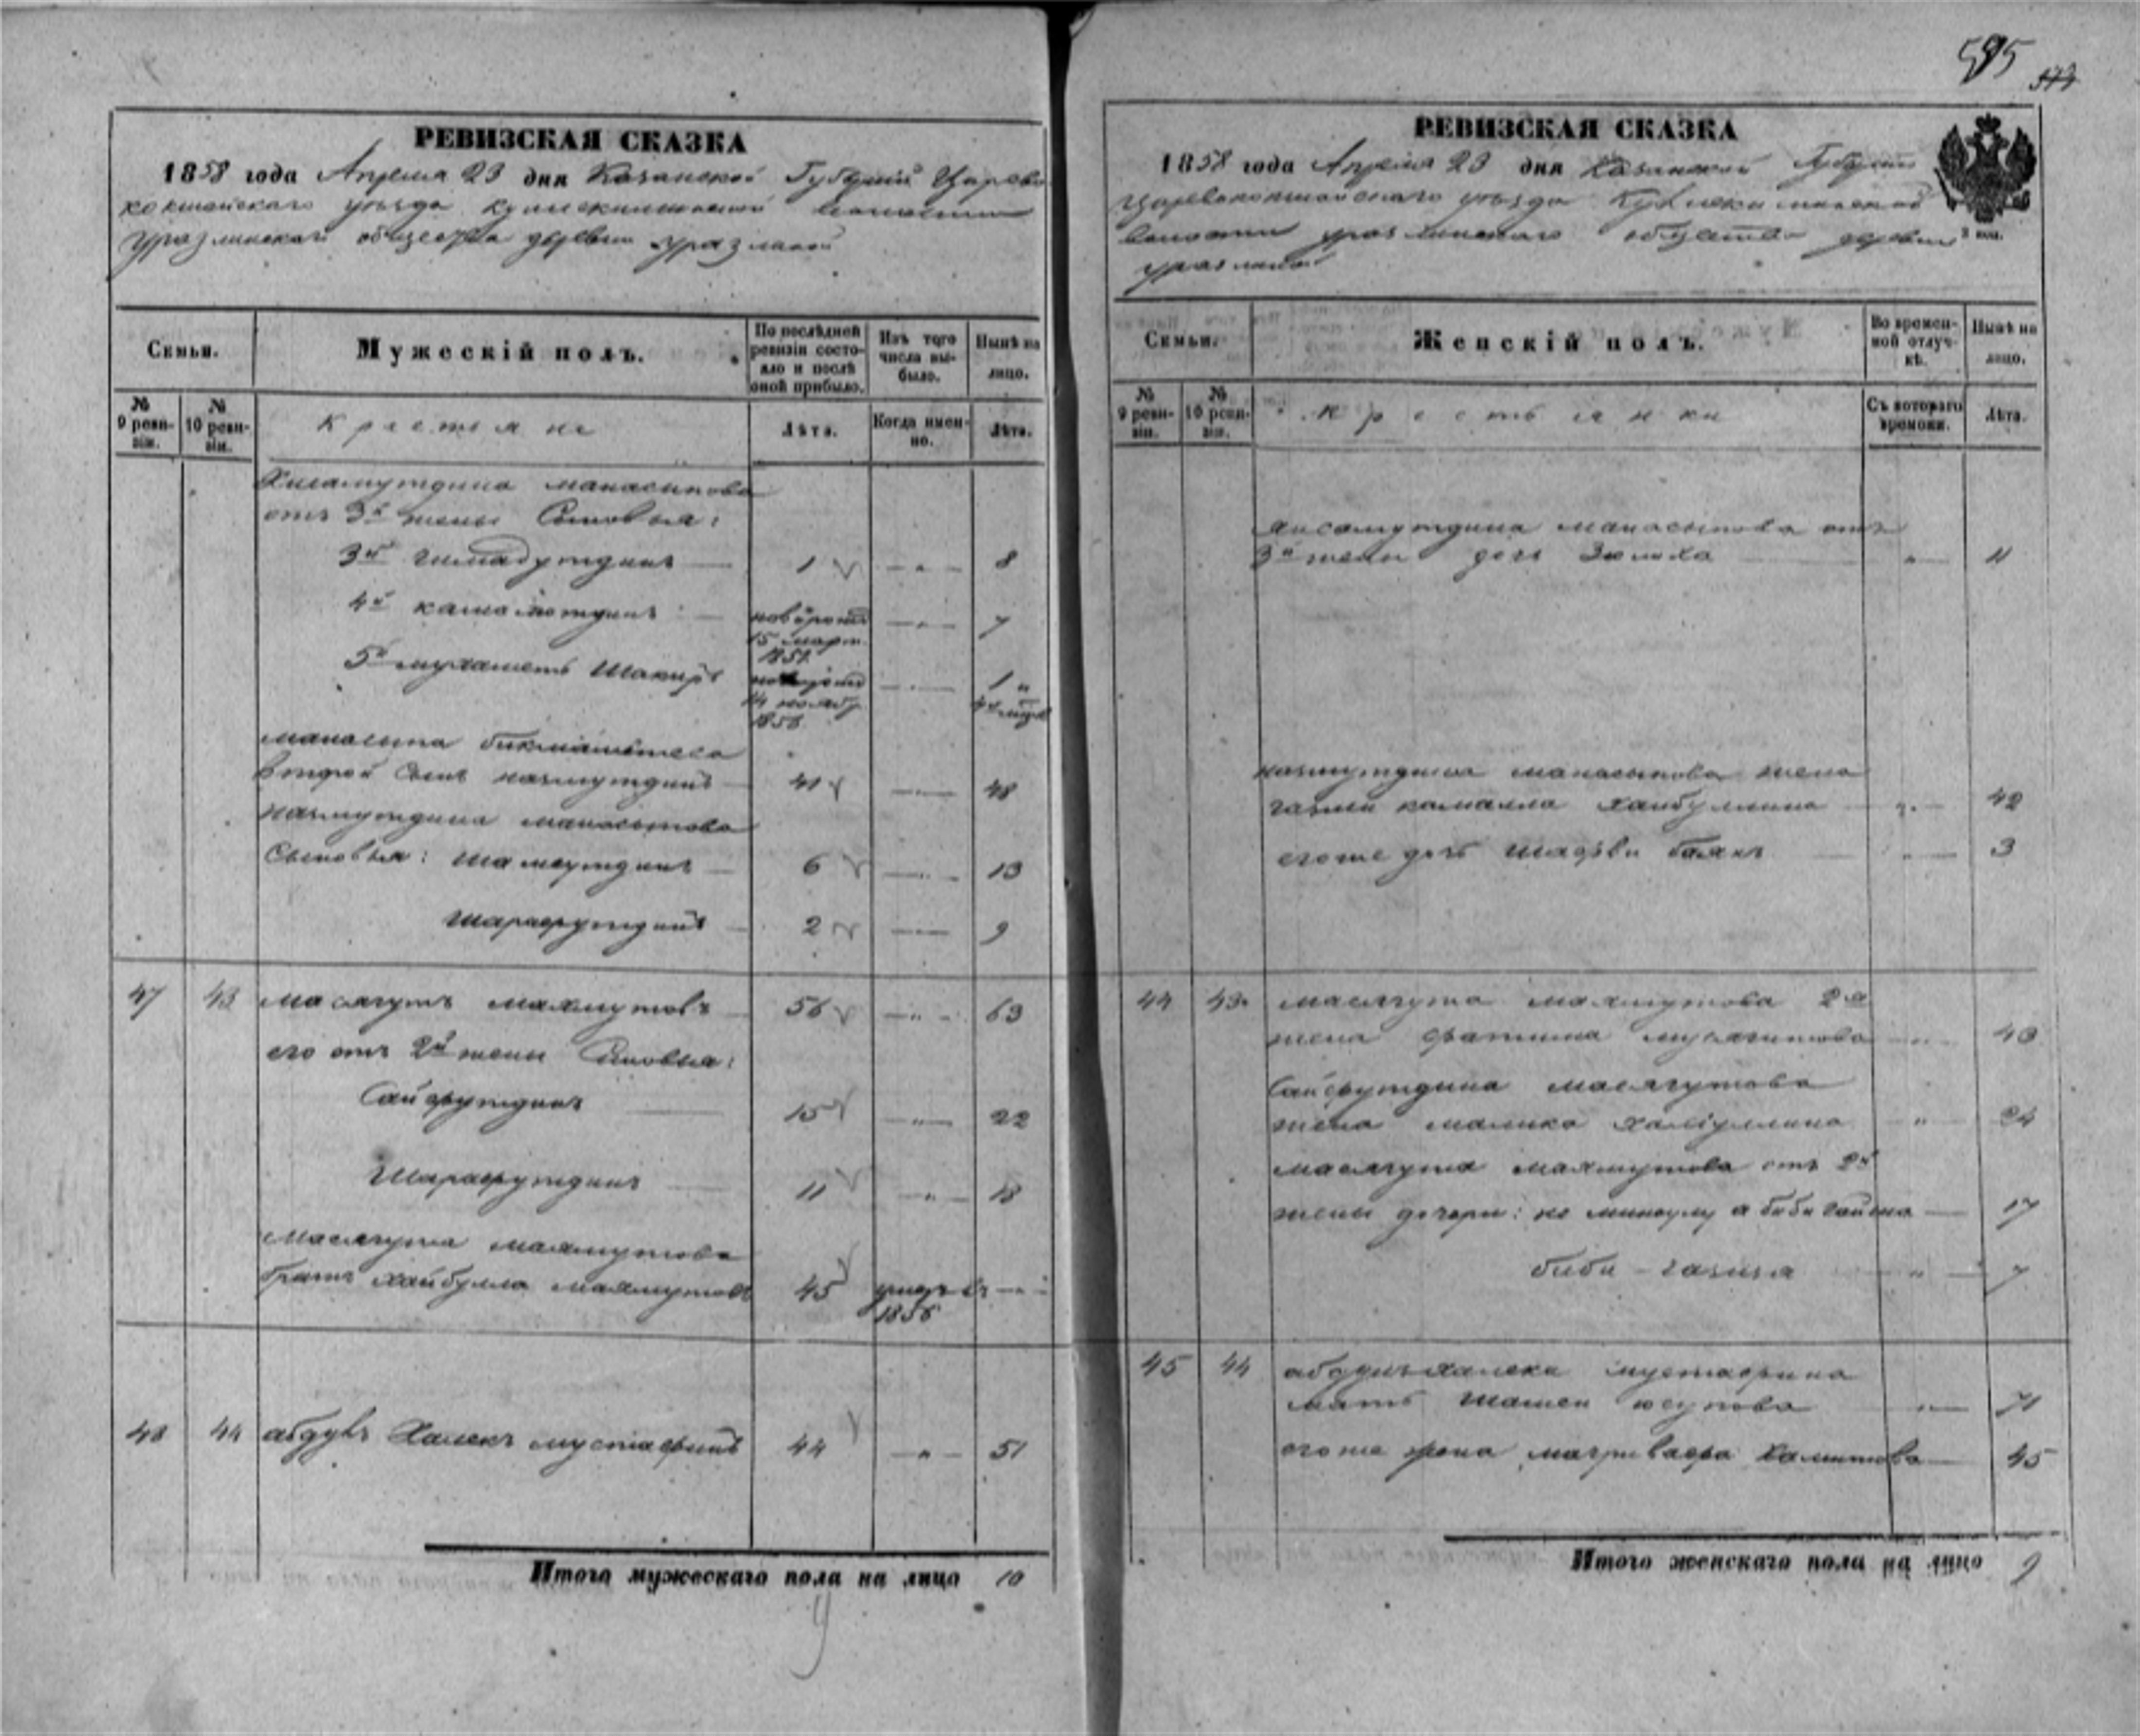 595
573
РЕВИЗСКАЯ СКАЗКА
1858 года Апреля 23 дня Казанской Губернии Царево
кокшайскаго уезда волости
Уразлинскаго общества деревни Уразлиной
Семьи.
Мужескій полъ.
По послѣдней ревизіи состояло и послѣ оной прибыло.
Изъ того числа выбыло.
Нынѣ на лицо.
№ 9 ревизіи.
№ 10 ревизіи.
Крестьяне
Лѣта.
Когда именно.
Лѣта.
Хисамутдина манасипова
отъ 3й жены Сыновья:
3й гимадутдинъ 1 8
4й камалютдинъ новорожд 15 март. 1851 7
5й мухаметъ Шакиръ 14 ноябр. 1856 1
манасипа бикмаметева
второй Сынъ назмутдинъ 41 48
назмутдина манасыпова
Сыновья: шамсутдинъ 6 13
шарафутдинъ 2 9
47 43 масягутъ махмутовъ 56 63
его отъ 2й жены Сыновья:
Сайфутдинъ 15 22
Шарафутдинъ 11 18
масягута махмутова
братъ хайбулла махмутовъ 45 умеръ въ 1856
48 44 абдулъ Халекъ мустафинъ 44 51
Итого мужескаго пола на лицо 10
9
РЕВИЗСКАЯ СКАЗКА
1858 года Апреля 23 дня Казанской Губернии
Царевококшайскаго уезда
волости уразлинскаго общества деревни
уразлиной
Семьи.
Женскій полъ.
Во временной отлучкѣ.
Нынѣ на лицо.
№ 9 ревизіи.
№ 10 ревизіи.
крестьянки
Съ котораго времени.
Лѣта.
хисамутдина манасыпова отъ
3й жены дочь Зюлиха 11
назмутдина манасыпова жена
камалиа хайбуллина 42
его же дочь 3
44 43 масягута махмутова 2я
жена фатима 43
Сайфутдина масягутова
жена малика 24
масягута махмутова отъ 2й
жены дочери: 17
биби-газизя 7
45 44 абдулъхалека мустафина
мать юсупова 71
его же жена Хамитова 45
Итого женскаго пола на лицо 9